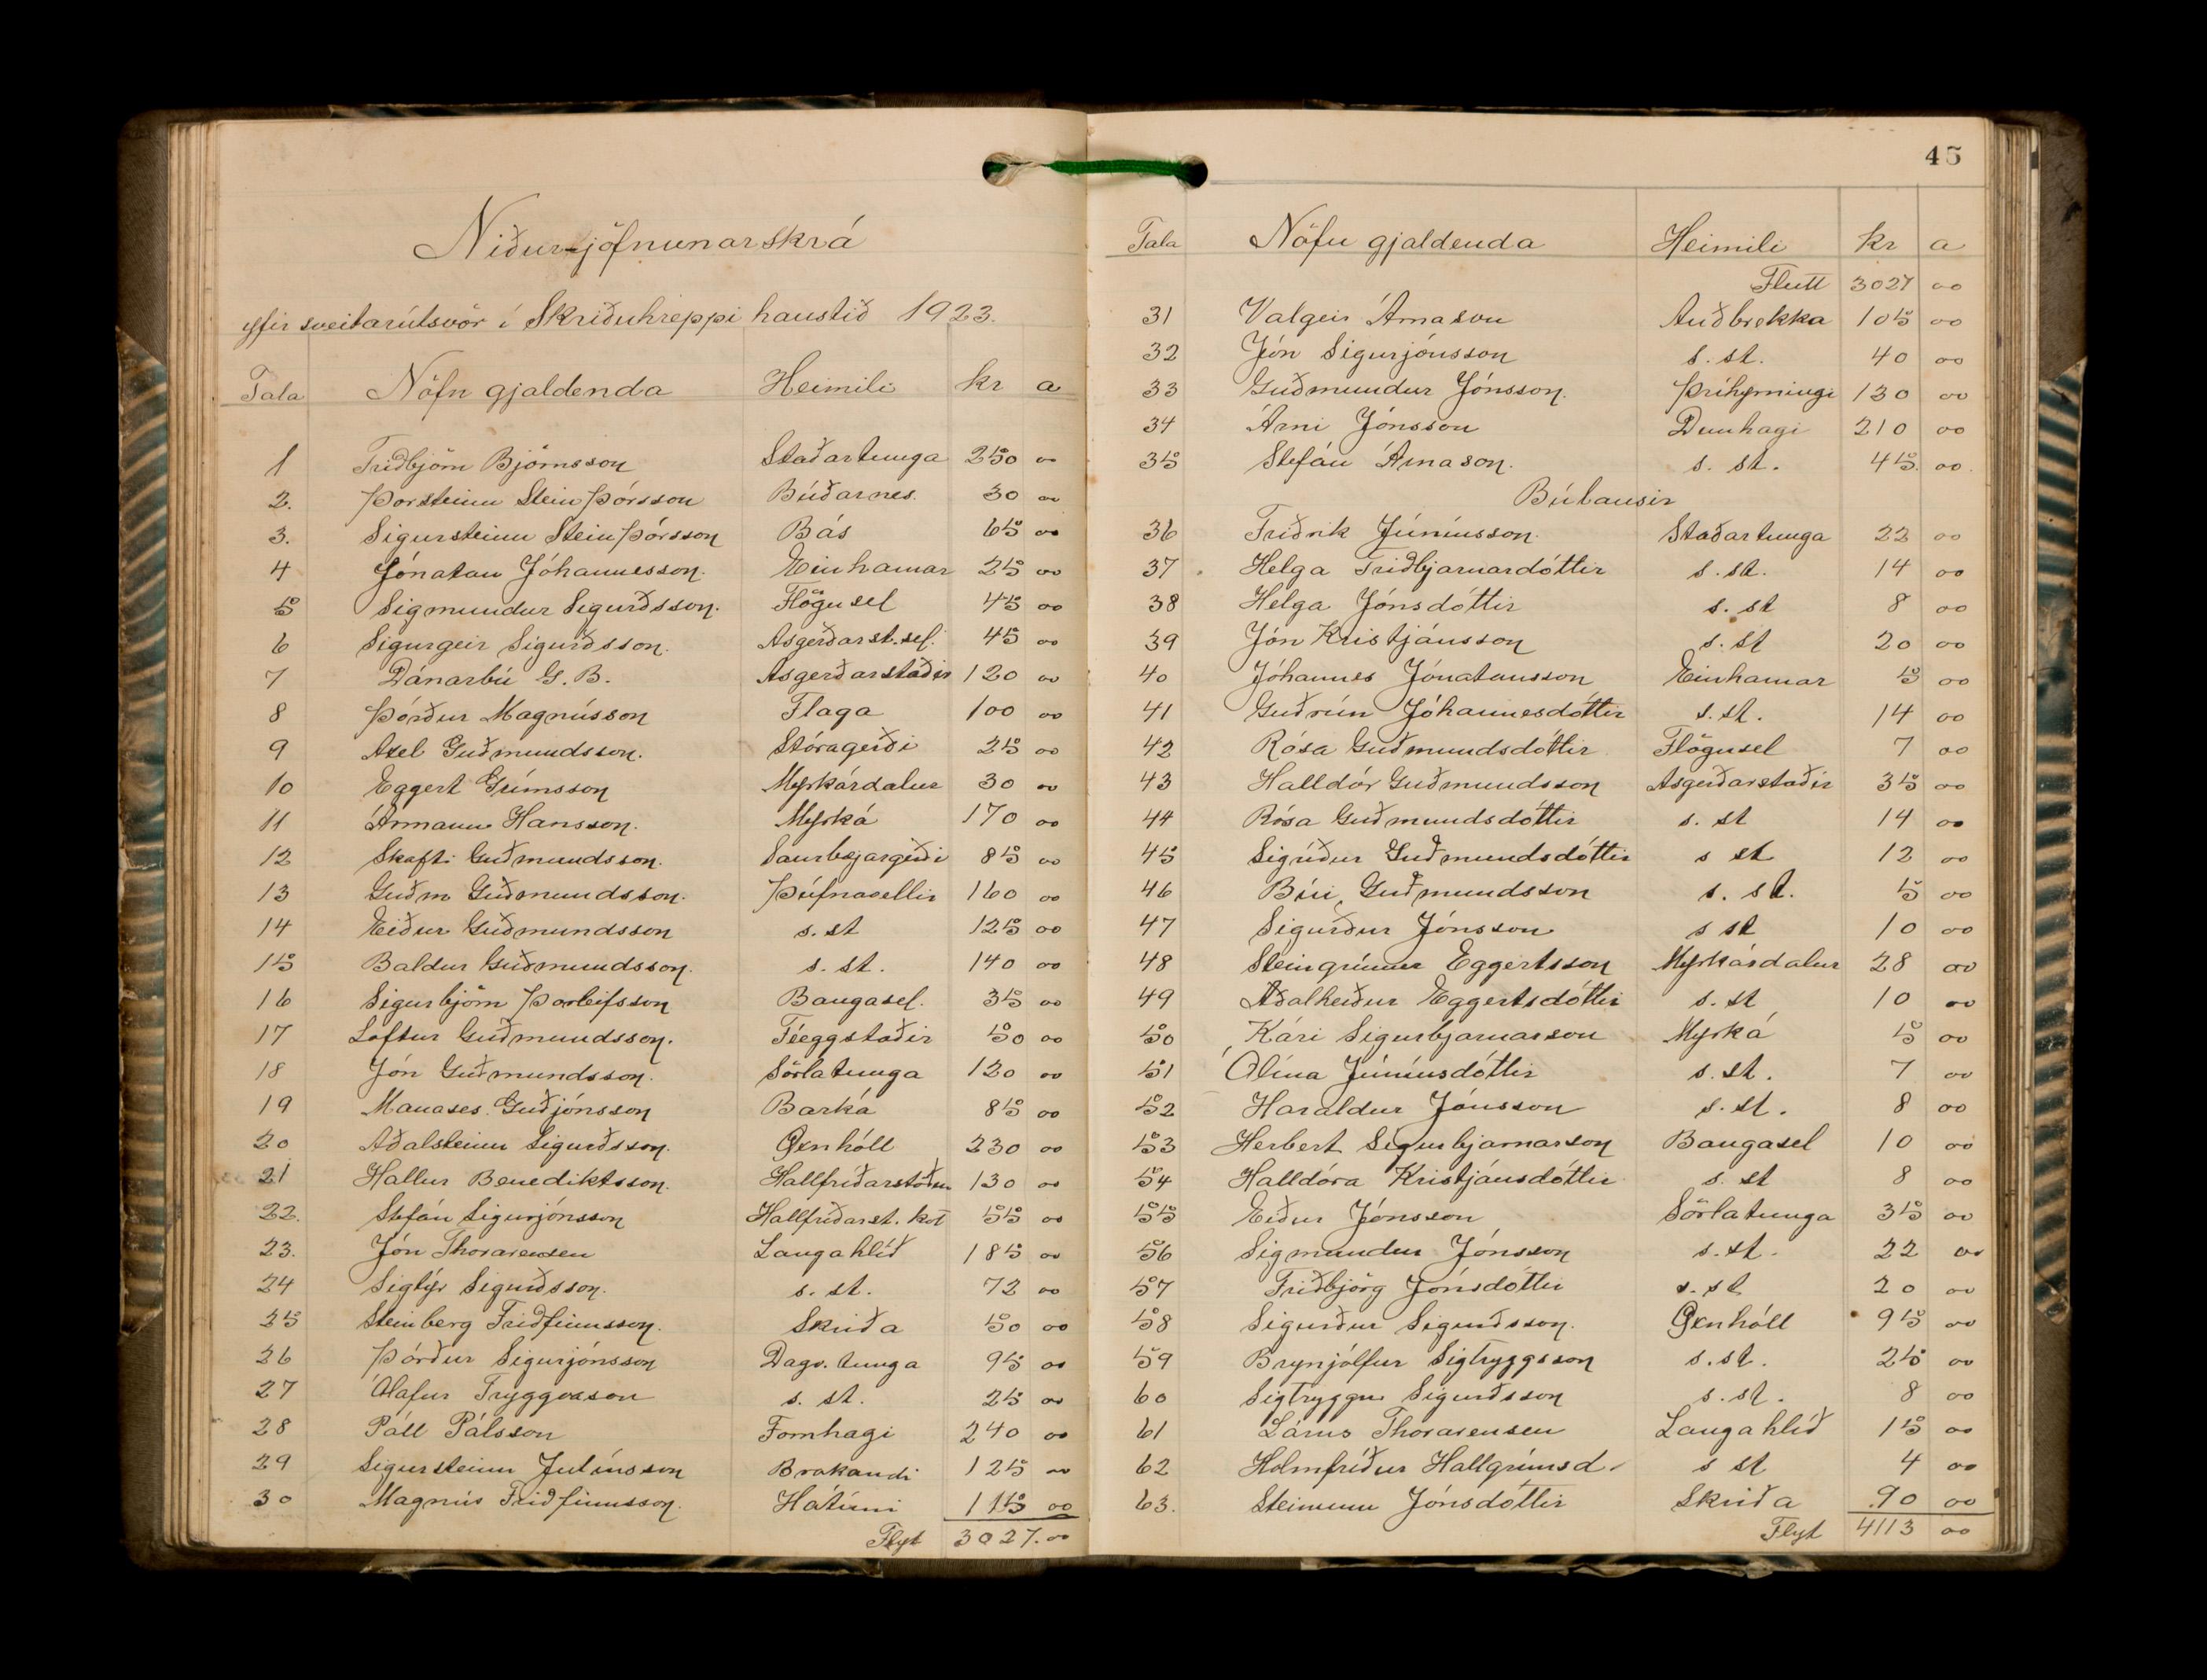 Niðurjöfnunarskrá
yfir sveitarútsvör í Skriðuhreppi haustið 1923.
Tala Nöfn gjaldenda Heimili kr a
1 Friðbjörn Björnsson Staðartunga 250 00
2. Þorsteinn Steinþórsson Búðarnes. 30 00
3. Sigursteinn Steinþórsson Bás 65 00
4 Jónatan Jóhannesson. Einhamar 25 00
5 Sigmundur Sigurðsson. Flögusel 45 00
6 Sigurgeir Sigurðsson. Asgerðarst.sel. 45 00
7 Dánarbú G. B. Asgerðarstaðir 120 00
8 Þórður Magnússon Flaga 100 00
9 Axel Guðmundsson. Stóragerði 25 00
10 Eggert Grímsson Myrkárdalur 30 00
11 Ármann Hansson. Myrká 170 00
12 Skafti Guðmundsson. Saurbæjargerði 85 00
13 Guðm Guðmundsson. Þúfnavellir 160 00
14 Eiður Guðmundsson s. st 125 00
15 Baldur Guðmundsson. s. st. 140 00
16 Sigurbjörn Þorleifsson Baugasel. 35 00
17 Loftur Guðmundsson. Féeggstaðir 50 00
18 Jón Guðmundsson. Sörlatunga 120 00
19 Manases Guðjónsson Barká 85 00
20 Aðalsteinn Sigurðsson. Öxnhóll 230 00
21 Hallur Benediktsson. Hallfríðarstöðum 130 00
22. Stefán Sigurjónsson Hallfríðarst. kot 55 00
23. Jón Thorarensen Langahlíð 185 00
24 Sigtýr Sigurðsson. s. st. 72 00
25 Steinberg Friðfinnsson. Skriða 50 00
26 Þórður Sigurjónsson Dagv. tunga 95 00
27 Ólafur Tryggvason s. st. 25 00
28 Páll Pálsson Fornhagi 240 00
29 Sigursteinn Júlíusson Brakandi 125 00
30 Magnús Friðfinnsson. Hátúni 115 00
Flyt 3027.00
45
Tala Nöfn gjaldenda Heimili kr a
Flutt 3027 00
31 Valgeir Árnason Auðbrekka 105 00
32 Jón Sigurjónsson s. st. 40 00
33 Guðmundur Jónsson. Þríhyrningi 130 00
34 Árni Jónsson Dunhagi 210 00
35 Stefán Árnason. s. st. 45. 00.
Búlausir
36 Friðrik Júníusson. Staðartunga 22 00
37 Helga Friðbjarnardóttir s. st. 14 00
38 Helga Jónsdóttir s. st 8 00
39 Jón Kristjánsson s. st 20 00
40 Jóhannes Jónatansson Einhamar 5 00
41 Guðrún Jóhannesdóttir s. st. 14 00
42 Rósa Guðmundsdóttir Flögusel 7 00
43 Halldór Guðmundsson Asgerðarstaðir 35 00
44 Rósa Guðmundsdóttir s. st 14 00
45 Sigríður Guðmundsdóttir s st 12 00
46 Búi Guðmundsson s. st. 5 00
47 Sigurður Jónsson s st 10 00
48 Steingrímur Eggertsson Myrkárdalur 28 00
49 Aðalheiður Eggertsdóttir s. st 10 00
50 Kári Sigurbjarnarson Myrká 5 00
51 Ólína Júníusdóttir s. st. 7 00
52 Haraldur Jónsson s. st. 8 00
53 Herbert Sigurbjarnarson Baugasel 10 00
54 Halldóra Kristjánsdóttir s. st 8 00
55 Eiður Jónsson Sörlatunga 35 00
56 Sigmundur Jónsson s. st. 22 00
57 Friðbjörg Jónsdóttir s. st 20 00
58 Sigurður Sigurðsson. Öxnhóll 95 00
59 Brynjólfur Sigtryggsson s. st. 25 00
60 Sigtryggur Sigurðsson s. st. 8 00
61 Lárus Thorarensen Langahlíð 15 00
62 Hólmfríður Hallgrímsd. s st 4 00
63. Steinunn Jónsdóttir Skriða 90 00
Flyt 4113 00